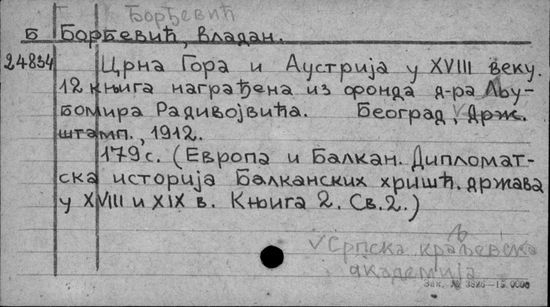 Ђорђевић
Б Борђевић, Владан.
24834 Црна Гора и Аустрија у XVIII веку.
12 књига награђена из фонда д-ра Љу-
бомира Радивојвића. Београд, Држ.
штамп., 1912.
179 с. (Европа и Балкан. Дипломат-
ска историја Балканских хришћ. држава
у XVIII и XIX в. Књига 2. Св. 2.)
Српска краљевска
академија
Зак. № 3826—15.000